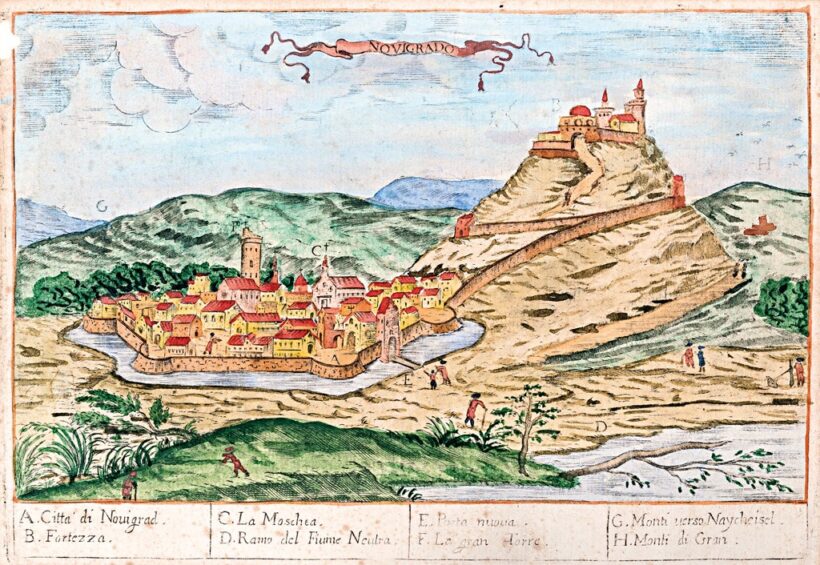 NOVIGRADO
G
B
H
F
C
A
E
D
A. Citta di Novigrad.
B. Fortezza.
C. La Moschea.
D. Ramo del Fiume Neutra.
E. Porta nuova.
F. La gran Torre.
G. Monti verso Naycheisel.
H. Monti di Gran.